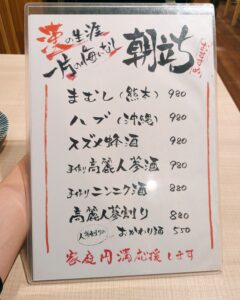 漢の生涯
一片の悔いなし
朝立ち
まむし(熊本) 980
ハブ(沖縄) 980
スズメ蜂酒 980
手作り高麗人蔘酒 980
手作りニンニク酒 880
高麗人蔘割り 880
おかわり酒 550
家庭円満応援します